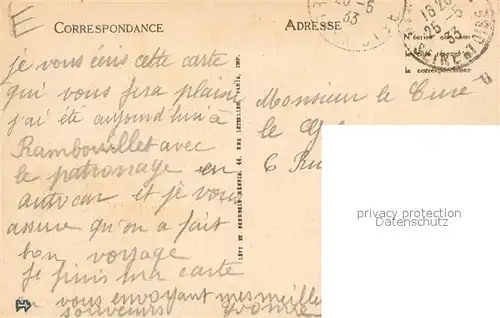 E
CORRESPONDANCE
ADRESSE
je vous écris cette carte
qui vous fera plaisir
j'ai été aujourd'hui à
Rambouillet avec
le patronage en
autocar et je vous
assure qu'on a fait
bon voyage
Je finis ma carte
en vous envoyant mes meilleu
souvenirs Yvonne
LÉVY ET NEURDEIN RÉUNIS, 44, RUE LETELLIER, PARIS, IMP.
25-6
33
16
25-6
33
SEINE-ET-OISE
N'écrire que
la correspondance
Monsieur le Curé
le
6 Ru
privacy protection
Datenschutz